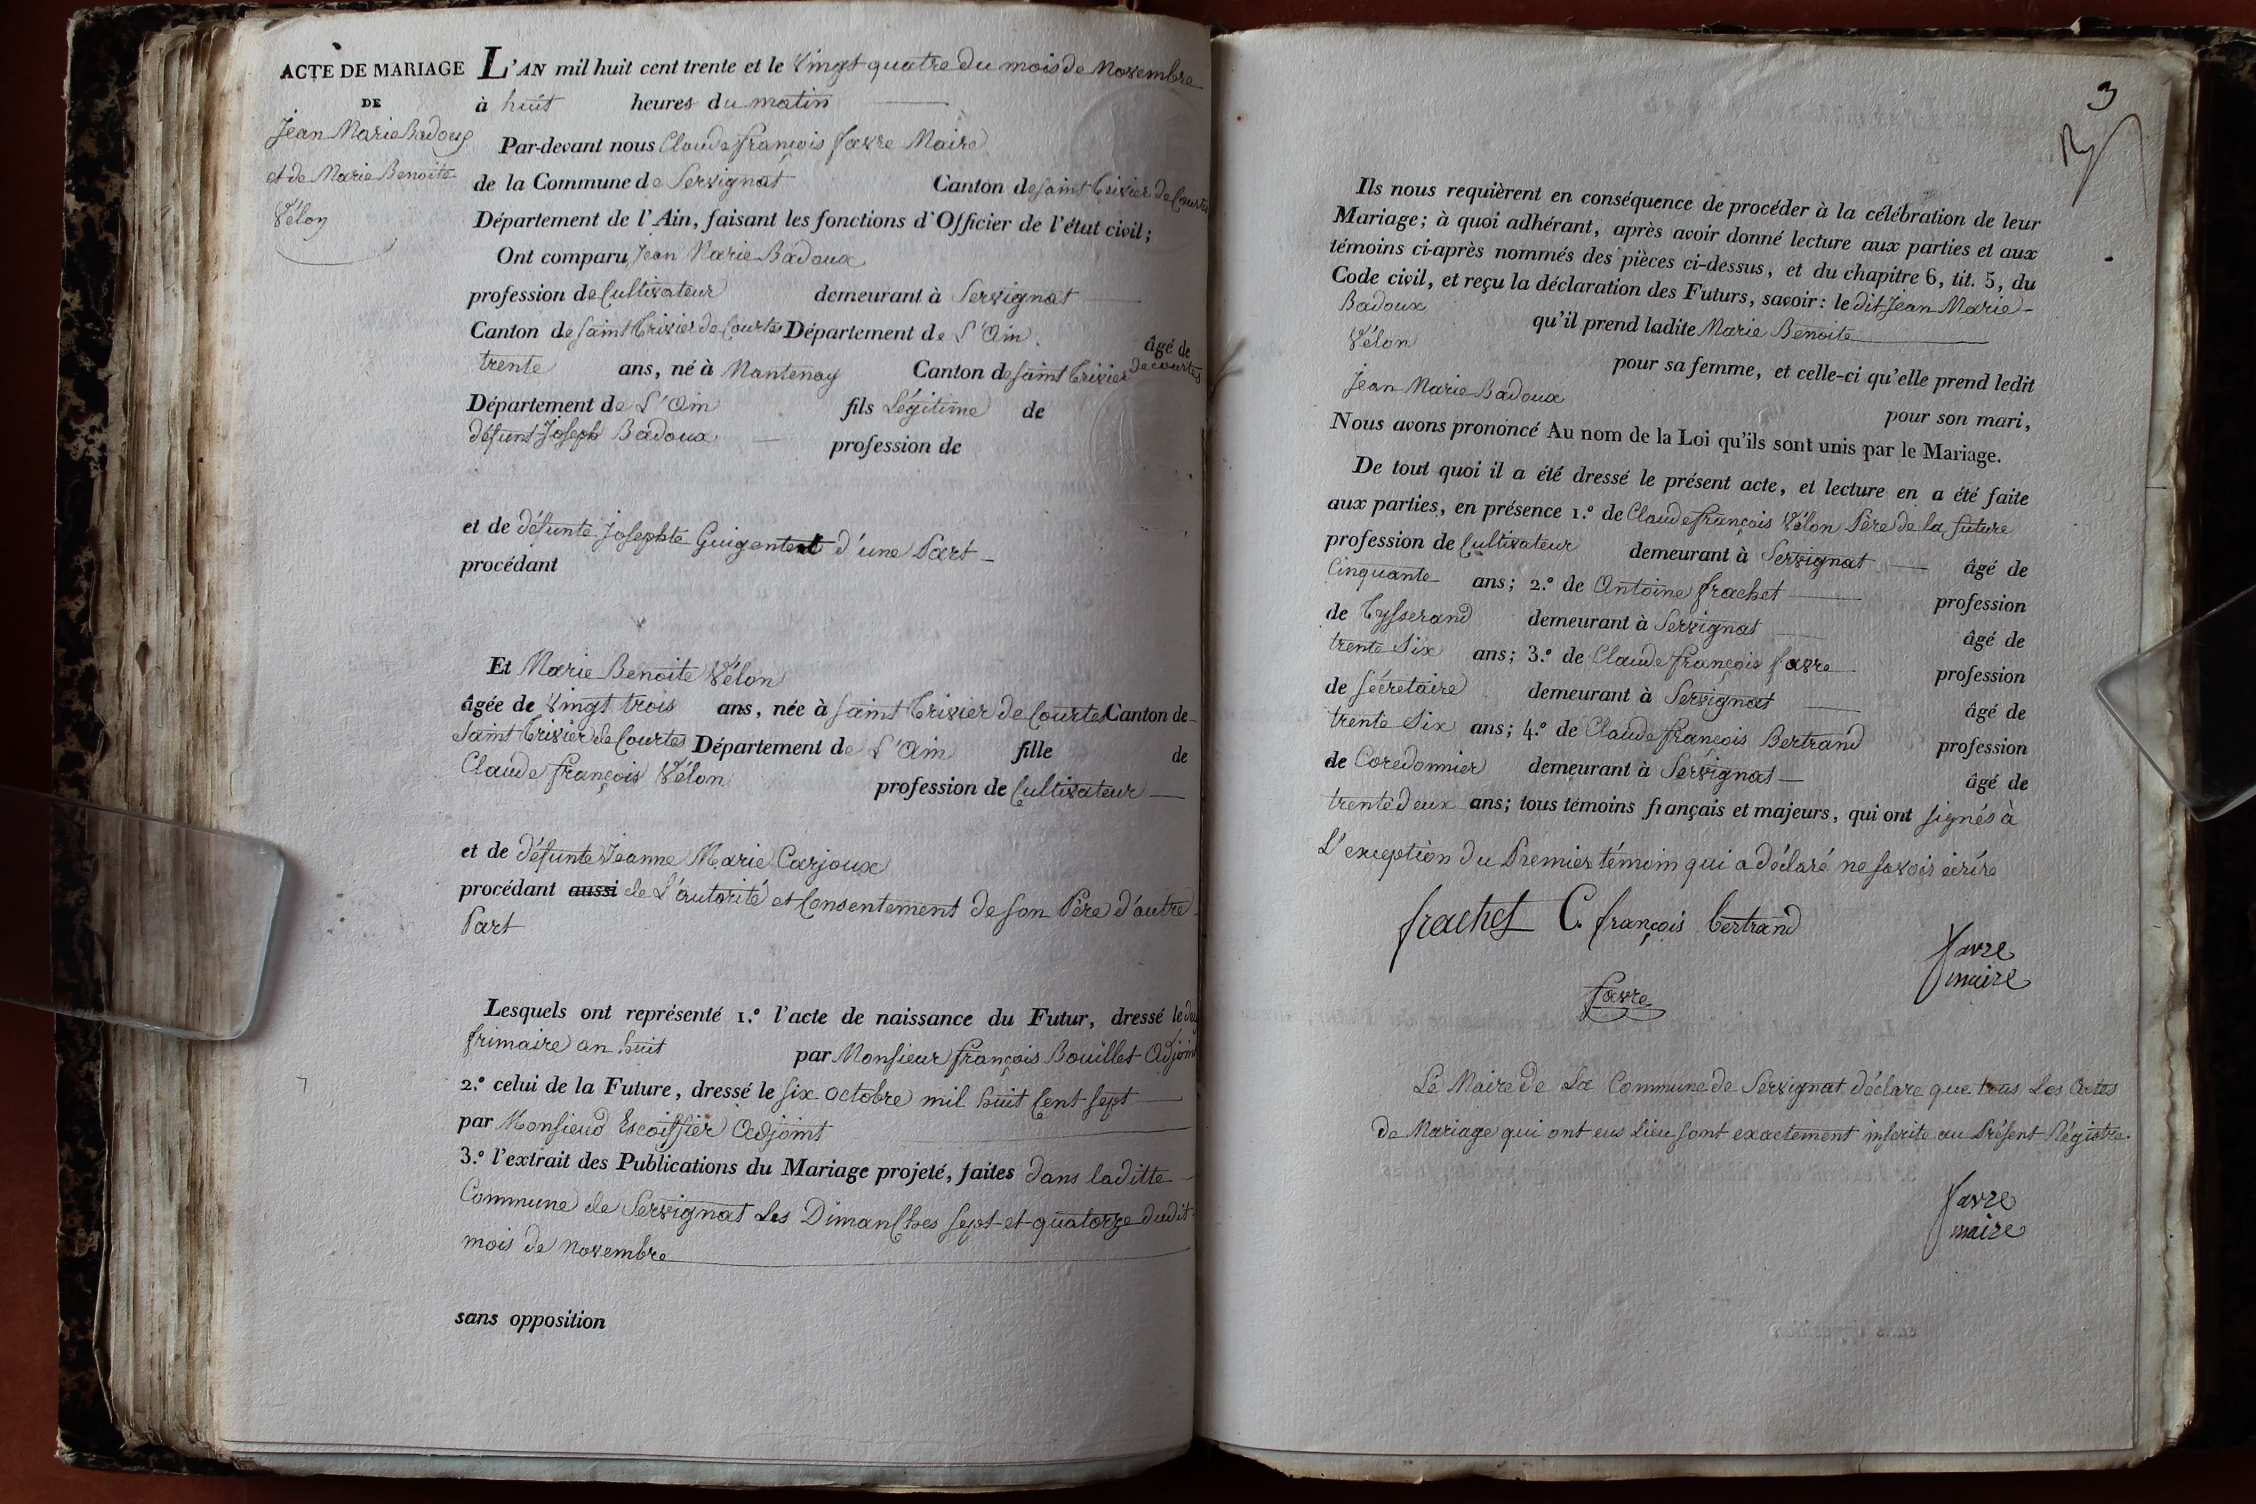 ACTE DE MARIAGE
DE
Jean Marie Badoux
et de Marie Benoite
Vélon
L'AN mil huit cent trente et le Vingt quatre du mois de Novembre
à huit heures du matin
Par-devant nous Claude françois favre Maire
de la Commune de Servignat Canton de saint trivier de Courtes
Département de l'Ain, faisant les fonctions d'Officier de l'état civil;
Ont comparu Jean Marie Badoux
profession de Cultivateur demeurant à Servignat
Canton de saint trivier de Courtes Département de L'Ain. âgé de
trente ans, né à Mantenay Canton de saint trivier de courtes
Département de L'Ain fils Légitime de
défunt Joseph Badoux profession de
et de défunte Josephte d'une Part
procédant
Et Marie Benoite Vélon
âgée de Vingt trois ans, née à saint trivier de Courtes Canton de
saint trivier de Courtes Département de L'Ain fille de
Claude françois Vélon profession de Cultivateur
et de défunte Jeanne Marie Carjoux
procédant aussi de L'autorité et Consentement de son Père d'autre
Part
Lesquels ont représenté 1.º l'acte de naissance du Futur, dressé le
frimaire an huit par Monsieur françois Bouillet Adjoint
2.º celui de la Future, dressé le six octobre mil huit Cent sept
par Monsieur Escoiffier Adjoint
3.º l'extrait des Publications du Mariage projeté, faites dans laditte
Commune de Servignat Les Dimanches sept et quatorze dudit
mois de novembre
sans opposition
3
Ils nous requièrent en conséquence de procéder à la célébration de leur
Mariage; à quoi adhérant, après avoir donné lecture aux parties et aux
témoins ci-après nommés des pièces ci-dessus, et du chapitre 6, tit. 5, du
Code civil, et reçu la déclaration des Futurs, savoir: le dit Jean Marie
Badoux qu'il prend ladite Marie Benoite
Vélon pour sa femme, et celle-ci qu'elle prend ledit
Jean Marie Badoux pour son mari,
Nous avons prononcé Au nom de la Loi qu'ils sont unis par le Mariage.
De tout quoi il a été dressé le présent acte, et lecture en a été faite
aux parties, en présence 1.º de Claude françois Vélon Père de la future
profession de Cultivateur demeurant à Servignat âgé de
Cinquante ans; 2.º de Antoine frachet profession
de tysserand demeurant à Servignat âgé de
trente Six ans; 3.º de Claude françois favre profession
de sécretaire demeurant à Servignat âgé de
trente Six ans; 4.º de Claude françois Bertrand profession
de Coredonnier demeurant à Servignat âgé de
trente deux ans; tous témoins français et majeurs, qui ont signés à
L'exception du Premier témoin qui a déclaré ne savoir écrire
frachet C. françois bertrand
favre
maire
favre
Le Maire de La Commune de Servignat déclare que tous Les Actes
de Mariage qui ont eus Lieu sont exactement inscrite au Présent Régistre.
favre
maire